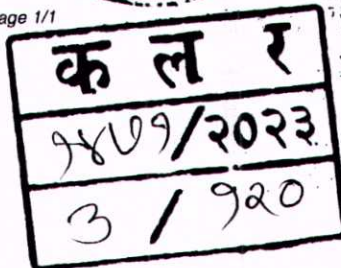 age 1/1
क ल र
१४७१/२०२३
३ / १२०